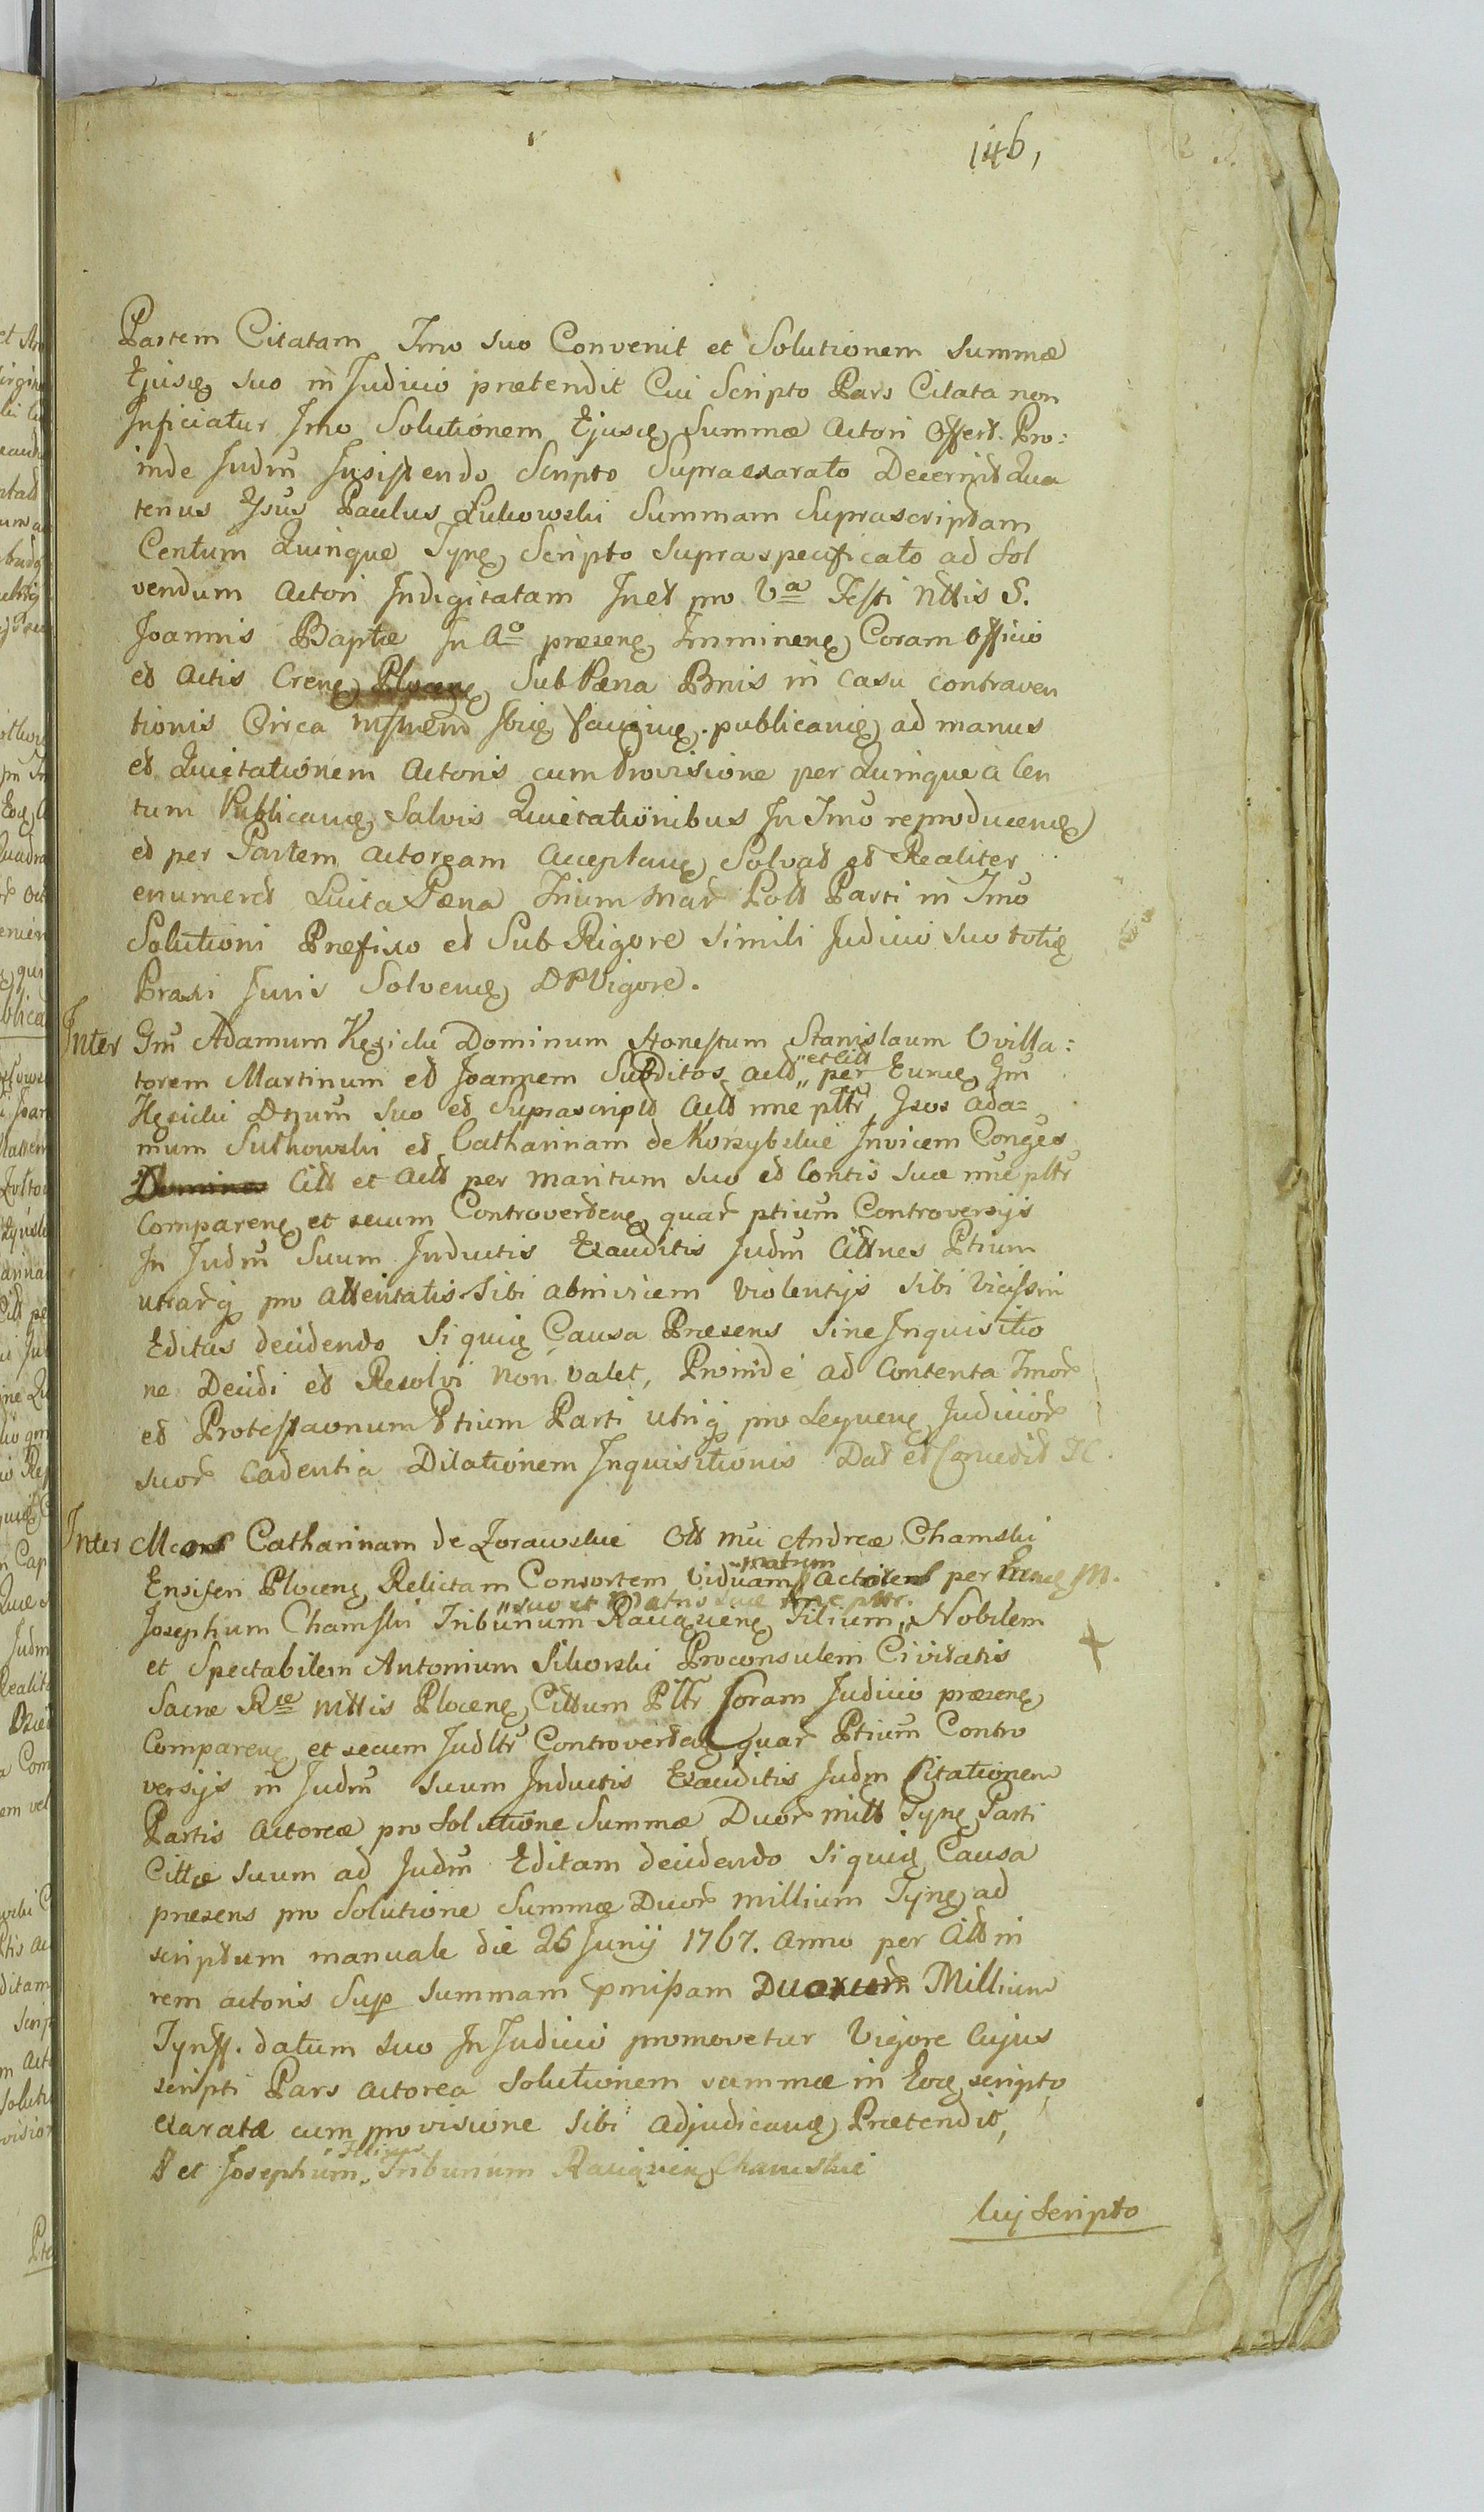 146,
Partem Citatam Tmo suo Convenit et Solutionem summæ
Ejusq suo in Judicio prætendit Cui Scripto Pars Citata non
Inficiatur Imo Solutionem Ejusq Summæ Actori Offert. Pro:
inde Judm Insistendo Scripto Supraexarato Decernit Qua
tenus Gsus Paulus Lukowski Summam Suprascriptam
Centum Quinque Tynq Scripto supraspecificato ad Sol
vendum Actori Indigitatam In et pro Va Festi Nttis S.
Joannis Baptæ In Ao præsenq Imminenq Coram Officio
et Actis Crenq Plocenq Sub Pæna Bnis in casu contraven
tionis Circa publicanq ad manus
et Quietationem Actoris cum Provisione per Quinque a Cen
tum Publicanq Salvis Quietationibus In Tmo reproducenq
et per Partem Actoream Acceptanq Solvat et Realiter
enumeret Luita Pæna Trium Mar Poll Parti in Tmo
Solutioni Præfixo et Sub Rigore simili Judicio suo totiq
Praxi Juris Solvenq DPVigore.
Inter Gm Adamum Kęsicki Dominum Honestum Stanislaum Villa:
torem Martinum et Joannem Subditos actt „et Citt„ per Eunq Gm
Kęsicki Dnum suo et Suprascript Actt nne pltr, Gsos Ada=
mum Sutkowski et Catharinam de Korzybskie Invicem Conges
Dominos Citt et Actt per maritum suo et Contis suæ nne pltr
Comparenq et secum Controvertenq quar ptium Controversijs
In Judm Suum Inductis Exauditis Judm Cittnes Ptium
utrarq pro attentatis sibi abinvicem violentijs sibi vicissim
Editas decidendo Siquiq Causa Præsens sine Inquisitio
ne Decidi et Resolvi non valet, Proinde ad Contenta Tmor
et Protestaonum Ptium Parti utriq pro Sequenq Judicior
suor cadentia Dilationem Inquisitionis Dat et Concedit IC.
Inter Mcam Catharinam de Zorawskie Ott Mci Andreæ Chamski
Ensiferi Plocenq Relictam Consortem Viduam „natum„ Actorem per Eunq M.
„suo et Matris suæ nne pltr.
Josephum Chamski Tribunum Raciąvenq Filium„ Nobilem
et Spectabilem Antonium Sikorski Proconsulem Civitatis
Sacræ Rie Mttis Plocenq Cittum Pltr Coram Judicio præsenq
Comparenq et secum Judltr Controvertenq quar Ptium Contro
versijs in Judm suum Inductis Exauditis Judm Citationem
Partis Actoreæ pro Solutione Summæ Duor mill Tynq Parti
Cittæ suum ad Judm Editam decidendo Siquiq Causa
præsens pro Solutione Summæ Duor millium Tynq ad
scriptum manuale die 26 Junij 1767. Anno per Citt in
rem actoris Sup summam pmißam Duorum Millium
Tynff. datum suo In Judicio promovetur Vigore Cujus
scripti Pars actorea Solutionem summæ in Eoq scripto
exaratæ cum provisione sibi adjudicanq Prætendit,
et Josephum „ Tribunum Raciąvenq Chamskie
Cuj Scripto